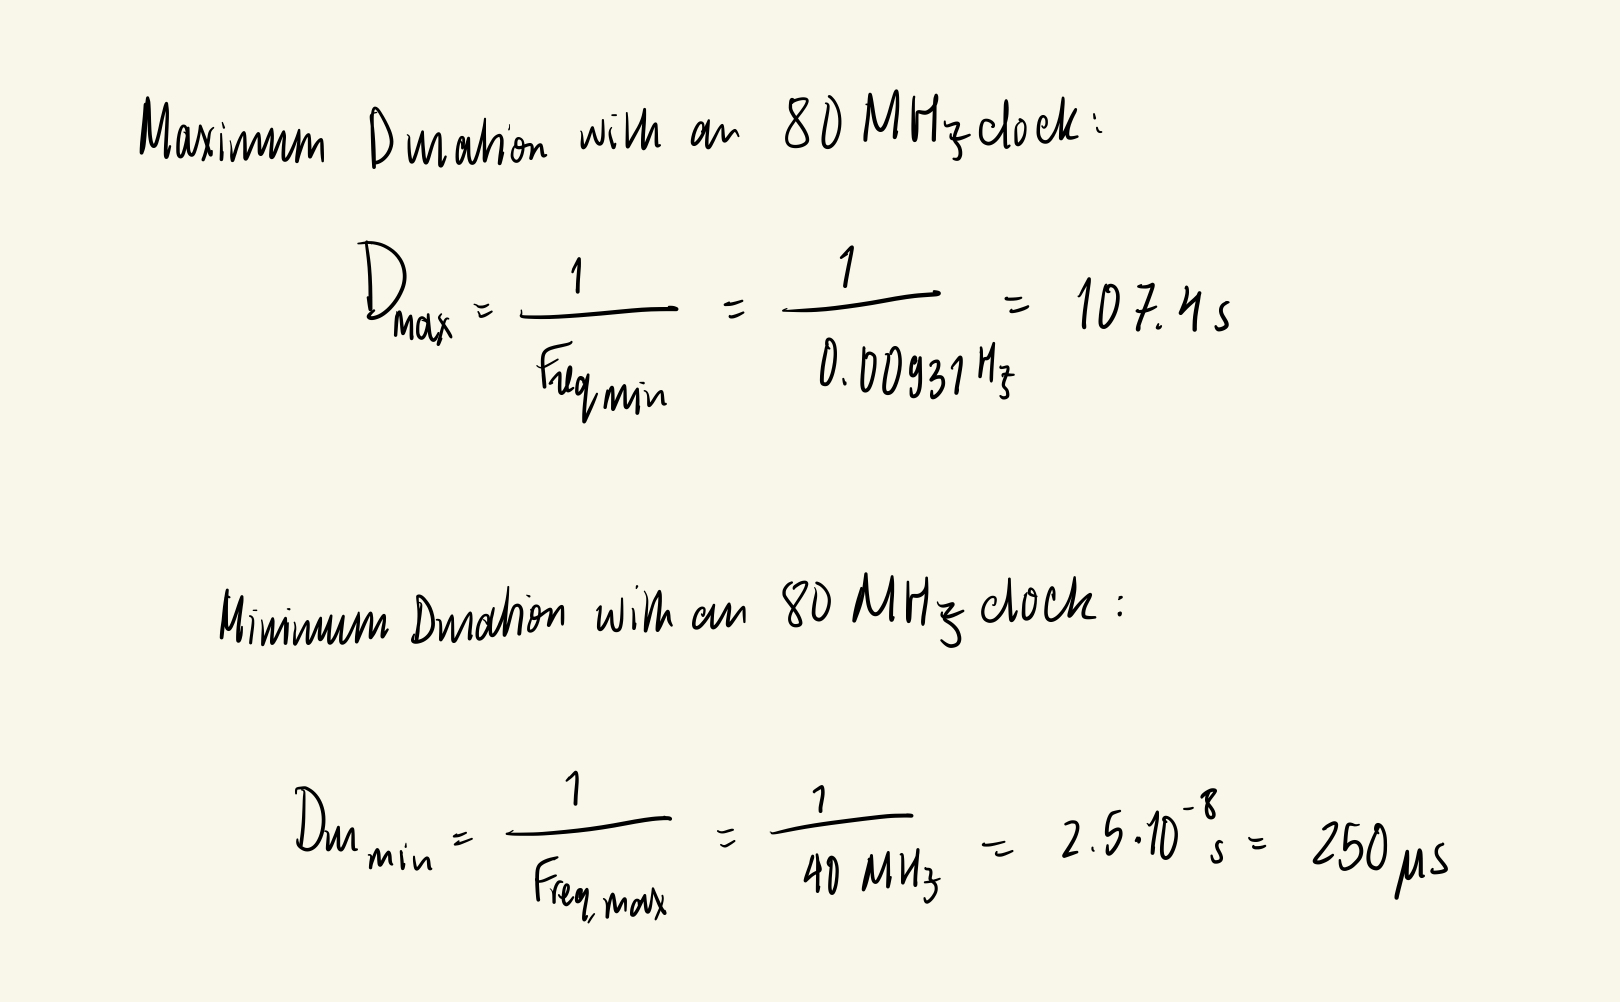 Maximum Duration with an 80 MHz clock:
D_max = 1 / Freq_min = 1 / 0.00931 Hz = 107.4 s
Minimum Duration with an 80 MHz clock:
Du_min = 1 / Freq_max = 1 / 40 MHz = 2.5 · 10^-8 s = 250 μs